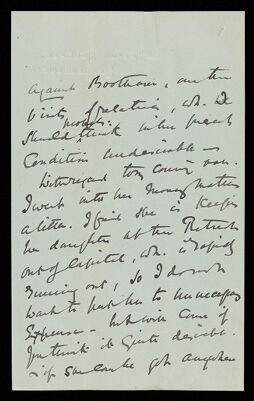 against Bootham, are the
visits of relatives, wh. I
should
probably
think in her present
condition undesirable —
With regard to my coming over.
I went into her money matters
a little. I find she is keeping
her daughter at the Retreat
out of capital, wh. is rapidly
running out, so I do not
want to put her to unnecessary
Expense — but will come if
you think it quite desirable.
if she can be got anywhere